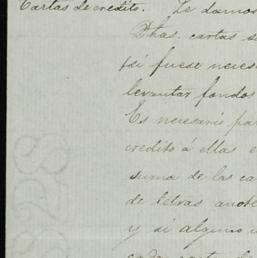 Cartas de credito. Ys damos
Dhas. cartas se
si fuese neces
levantar fondos
Es necesario pa
credito á ellas e
suma de las ca
de letras anot
y si alguno